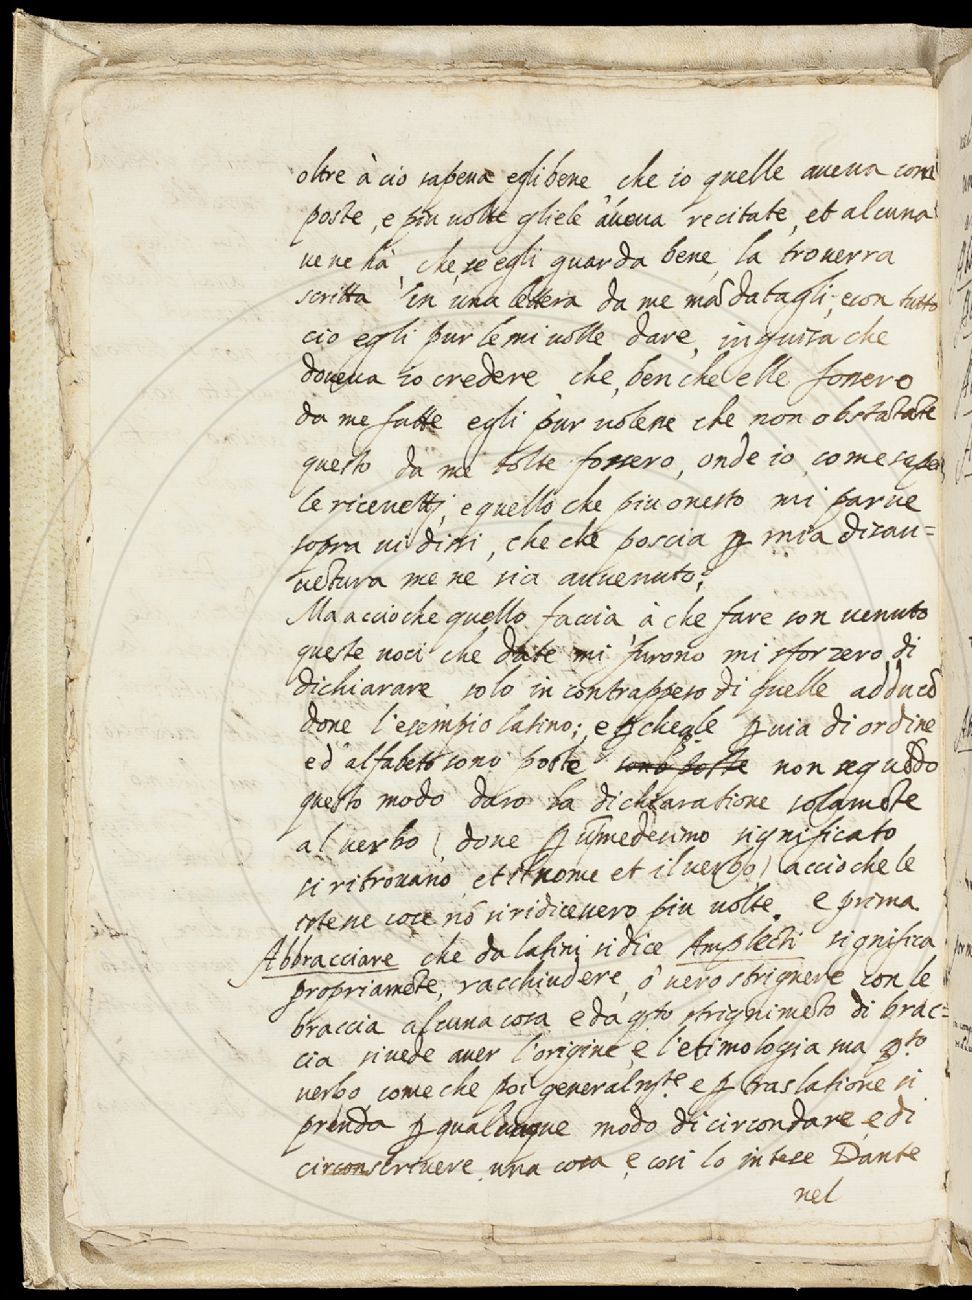 oltre à cio sapeua egli bene che io quelle aueua com
poste, e piu uolte gliele aueua recitate, et alcuna
ue ne hà, che, se egli guarda bene, la trouerra
scritta in una lettera da me mādatagli, e con tutto
cio egli pur le mi uolle dare, in guisa che
doueua io credere che, ben che elle fossero
da me fatte egli pur uolesse che non obstātāte
questo da me tolte fossero, onde io, come sapete
le riceuetti, e quello che piu onesto mi parue
sopra ui dissi, che che poscia ꝑ mia disau=
uētura me ne sia auuenuto;
Ma accioche quello faccia à che fare son uenuto
queste uoci che date mi furono mi sforzero di
dichiarare solo in contrappeso di quelle adducē
done l'esempio latino; e ꝑche q̄le ꝑ uia di ordine
ed alfabeto sono poste sono poste non seguēdo
questo modo daro la dichiaratione solamēte
al uerbo (doue ꝑ un medesimo significato
si ritrouano et il nome et il uerbo) accioche le
istesse cose nō si ridicessero piu uolte. e prima
Abbracciare che da latini si dice Amplecti significa
propriamēte, racchiudere, ò uero strignere con le
braccia alcuna cosa e da q̄sto strignimēto di brac=
cia si uede auer l'origine, e l'etimologia ma q̄sto
uerbo come che poi generalmte e ꝑ traslatione si
prenda ꝑ qualunque modo di circondare, e di
circonscriuere una cosa e cosi lo intese Dante
nel